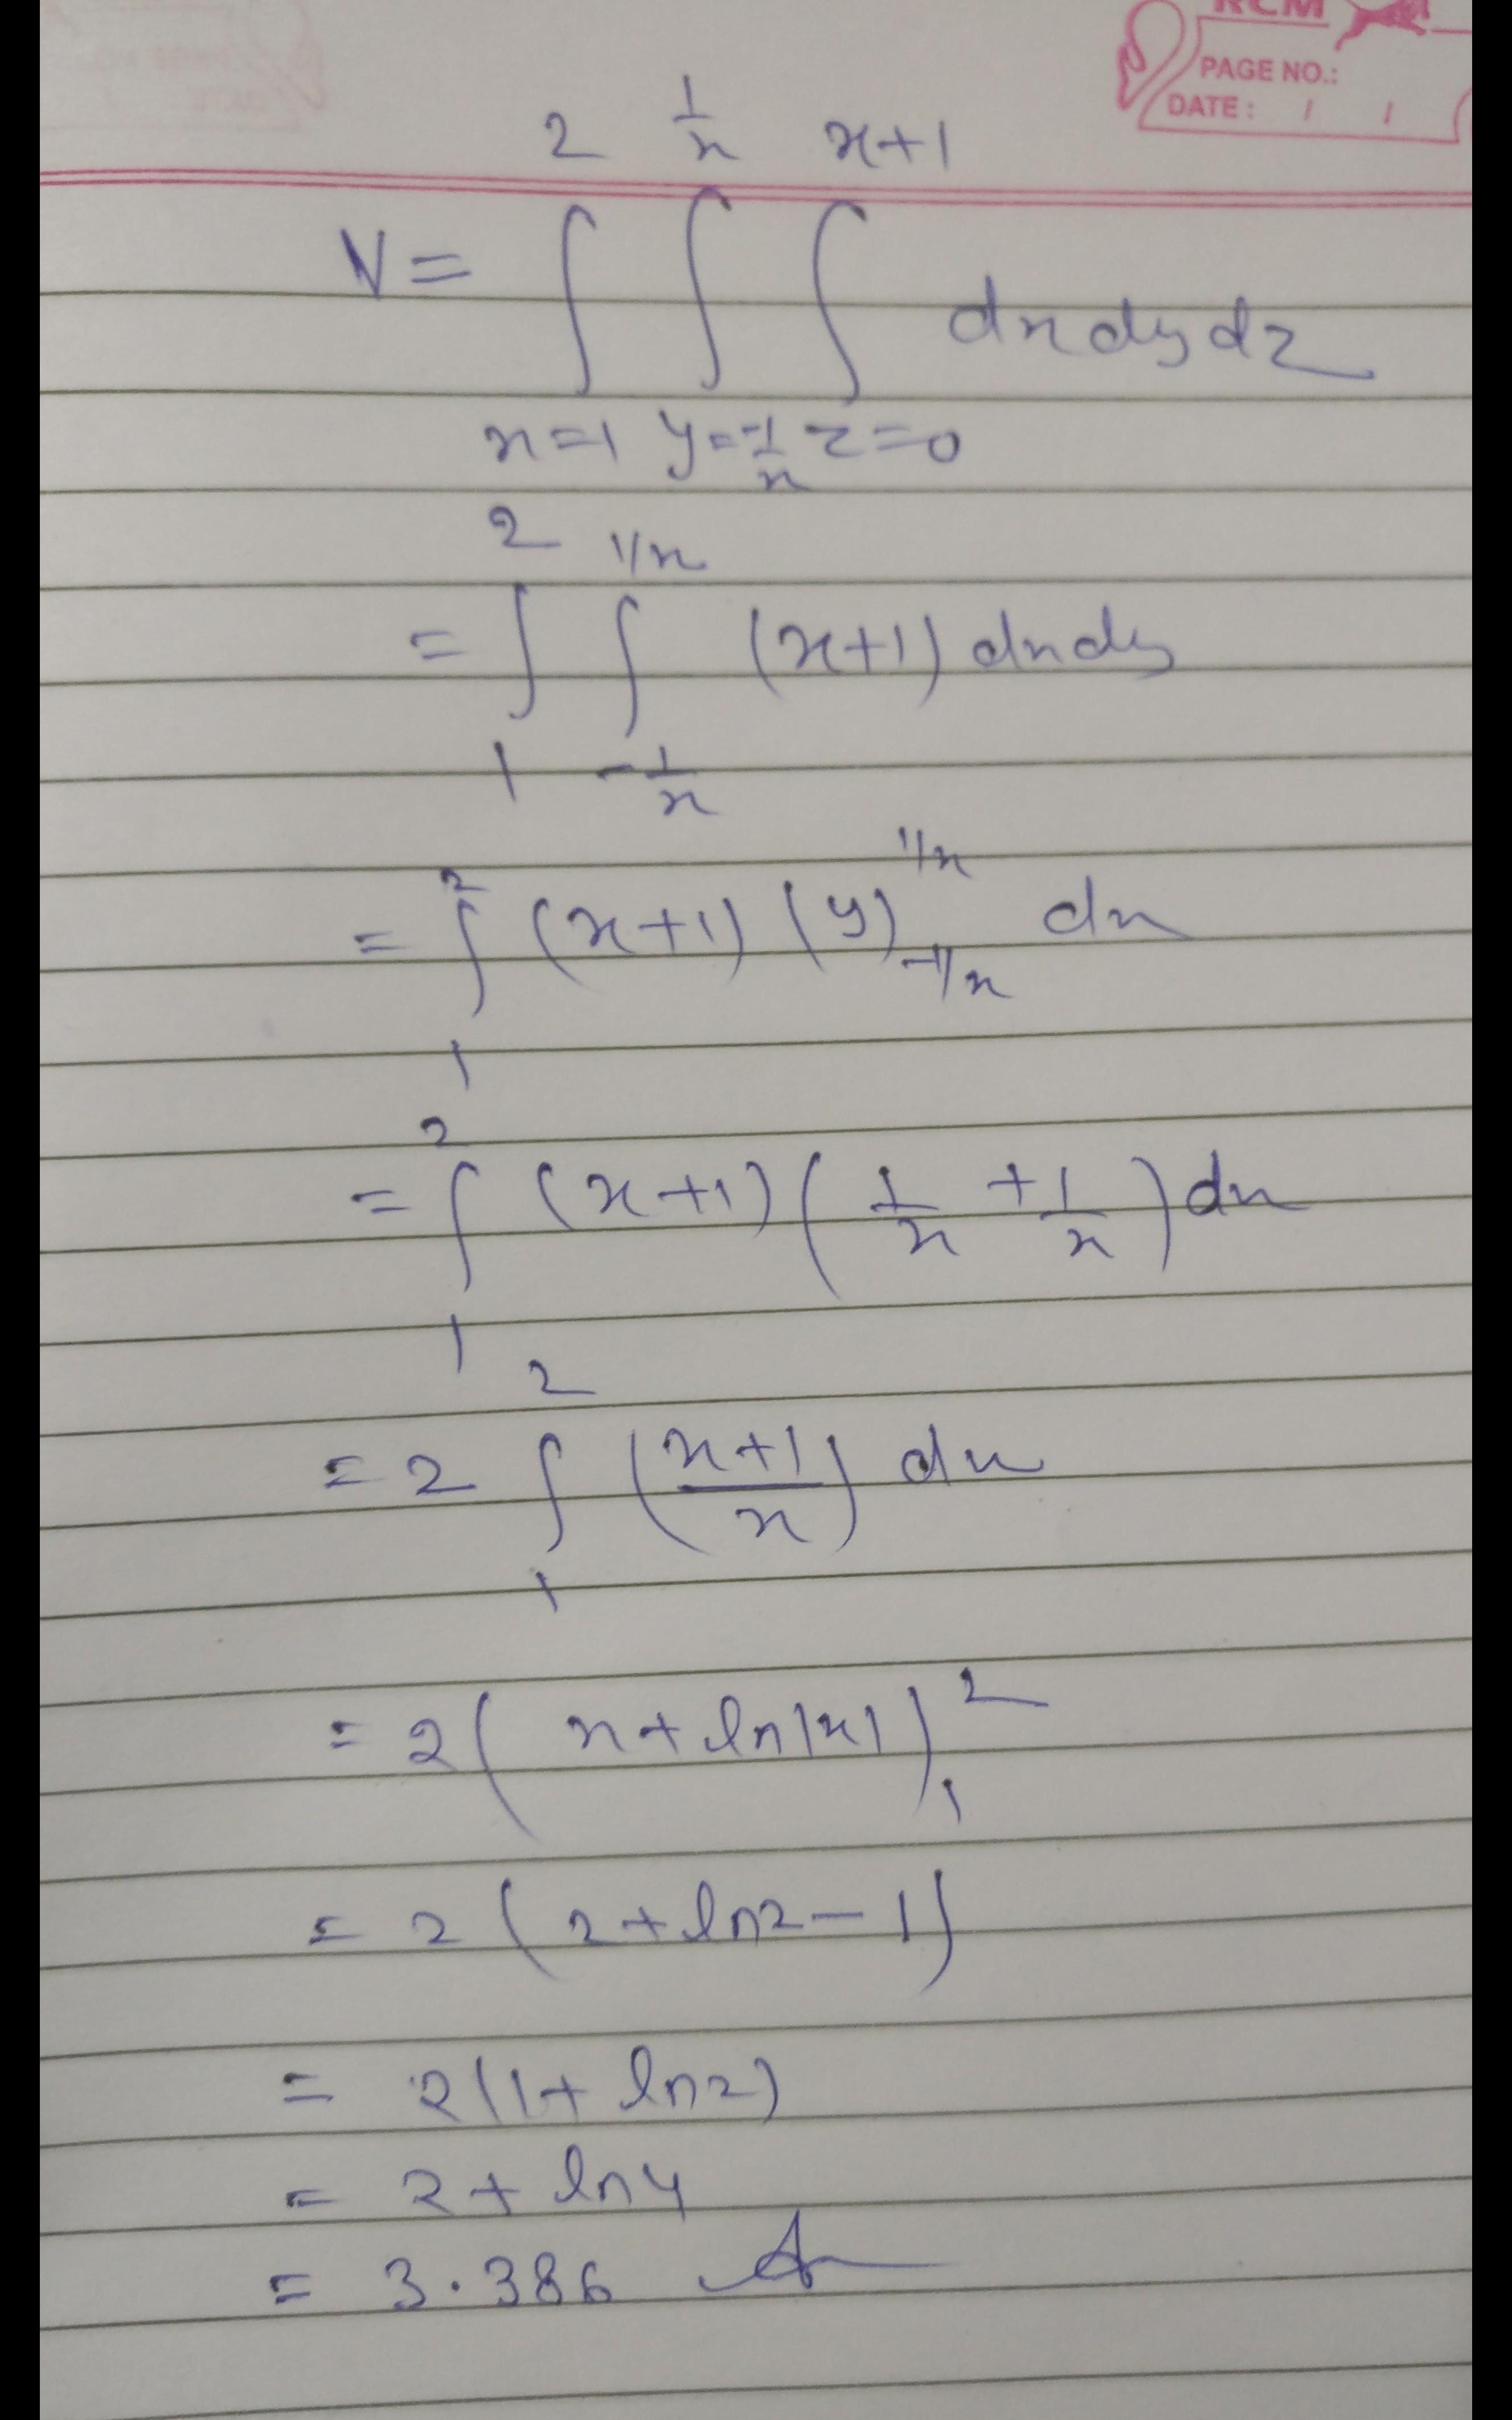 RCM
PAGE NO.:
DATE: / /
2 1/x x+1
V = ∫ ∫ ∫ dx dy dz
x=1 y=-1/x z=0
2 1/x
= ∫ ∫ (x+1) dx dy
1 -1/x
= ∫₁² (x+1) (y)_{-1/x}^{1/x} dx
= ∫₁² (x+1) (1/x + 1/x) dx
= 2 ∫₁² ((x+1)/x) dx
= 2 (x + ln|x|)₁²
= 2 (2 + ln2 - 1)
= 2(1 + ln2)
= 2 + ln4
= 3.386 A